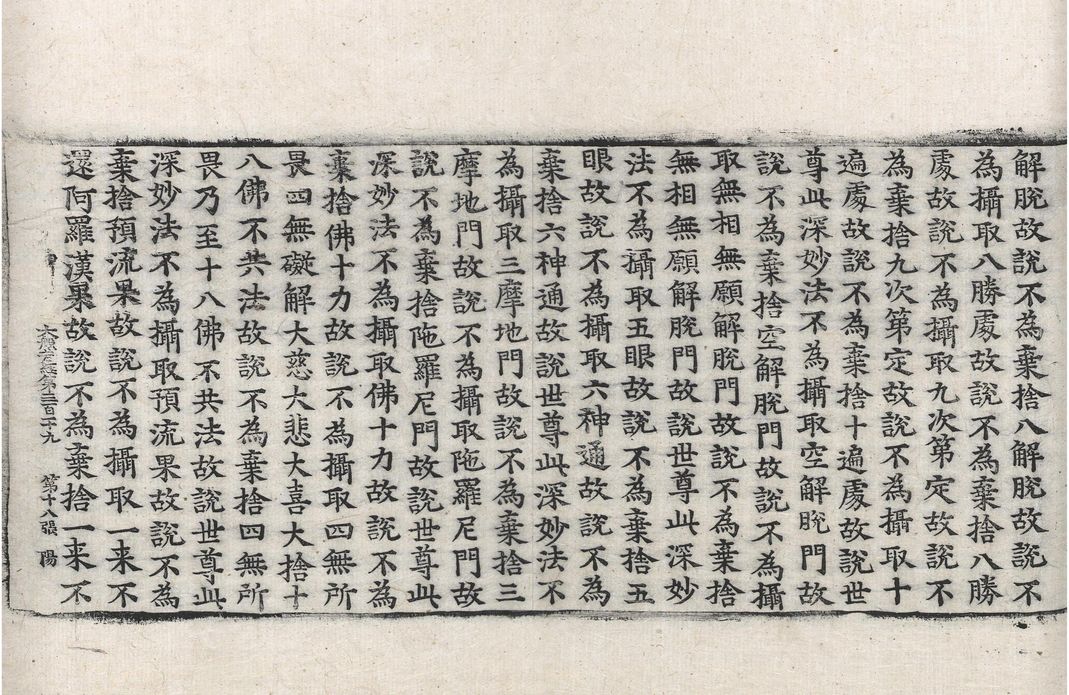 解脫故說不為棄捨八解脫故說不
為攝取八勝處故說不為棄捨八勝
處故說不為攝取九次第定故說不
為棄捨九次第定故說不為攝取十
遍處故說不為棄捨十遍處故說世
尊此深妙法不為攝取空解脫門故
說不為棄捨空解脫門故說不為攝
取無相無願解脫門故說不為棄捨
無相無願解脫門故說世尊此深妙
法不為攝取五眼故說不為棄捨五
眼故說不為攝取六神通故說不為
棄捨六神通故說世尊此深妙法不
為攝取三摩地門故說不為棄捨三
摩地門故說不為攝取陁羅尼門故
說不為棄捨陁羅尼門故說世尊此
深妙法不為攝取佛十力故說不為
棄捨佛十力故說不為攝取四無所
畏四無礙解大慈大悲大喜大捨十
八佛不共法故說不為棄捨四無所
畏乃至十八佛不共法故說世尊此
深妙法不為攝取預流果故說不為
棄捨預流果故說不為攝取一来不
還阿羅漢果故說不為棄捨一来不
大般若經第三百二十九 第十八張 陽